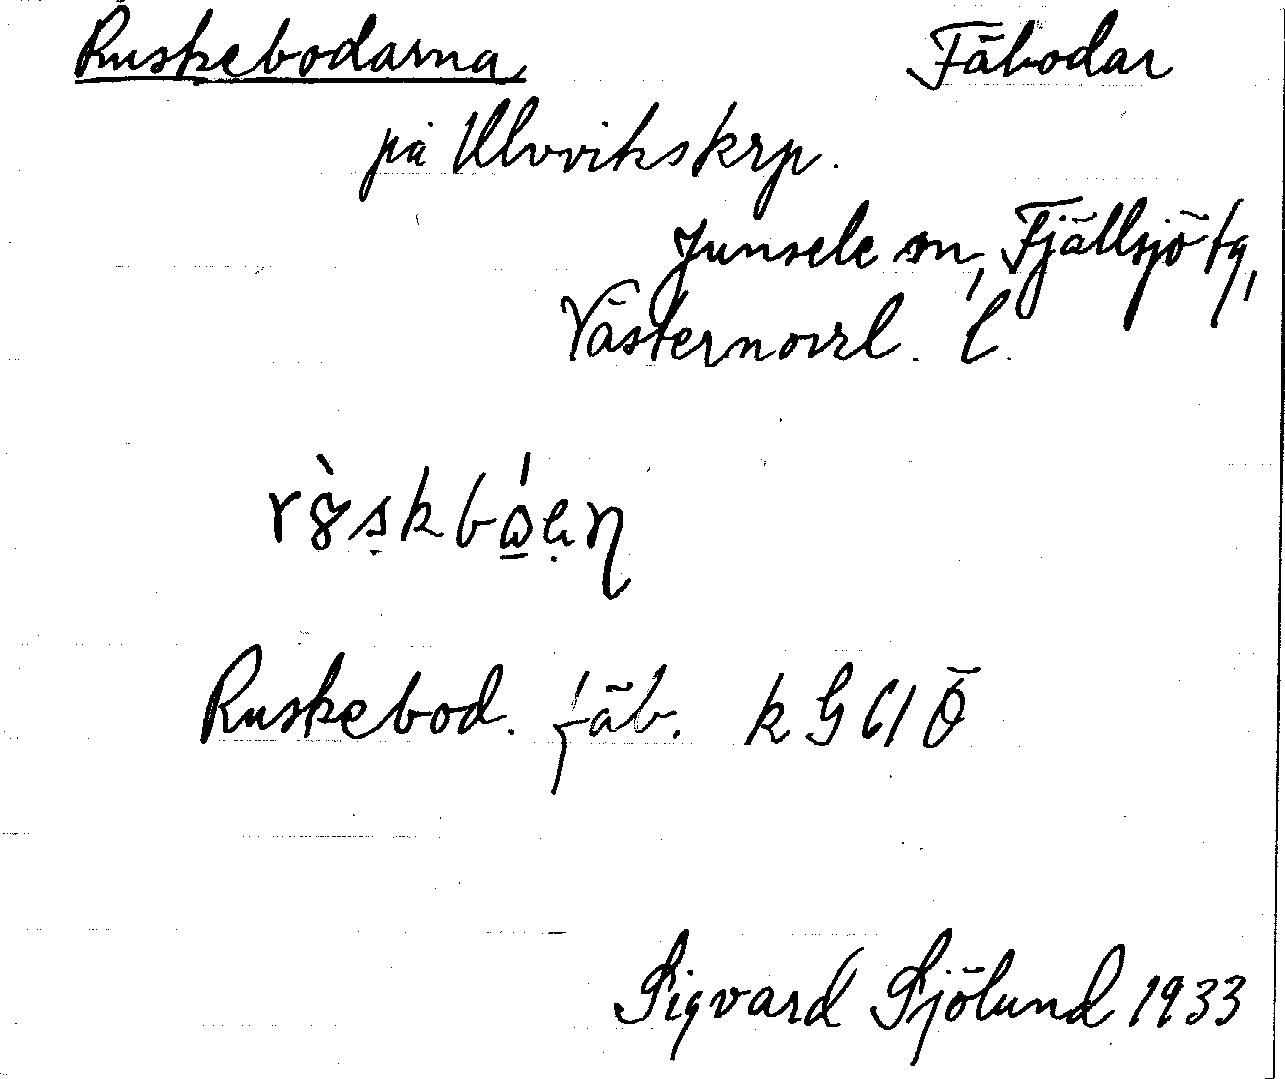 Ruskebodarna Fäbodar
på Ulvvikskrp.
Junsele sn, Fjällsjö tg,
Västernorrl. l.
Ruskebod. fäb. k G 61 Ö
Sigvard Sjölund 1933